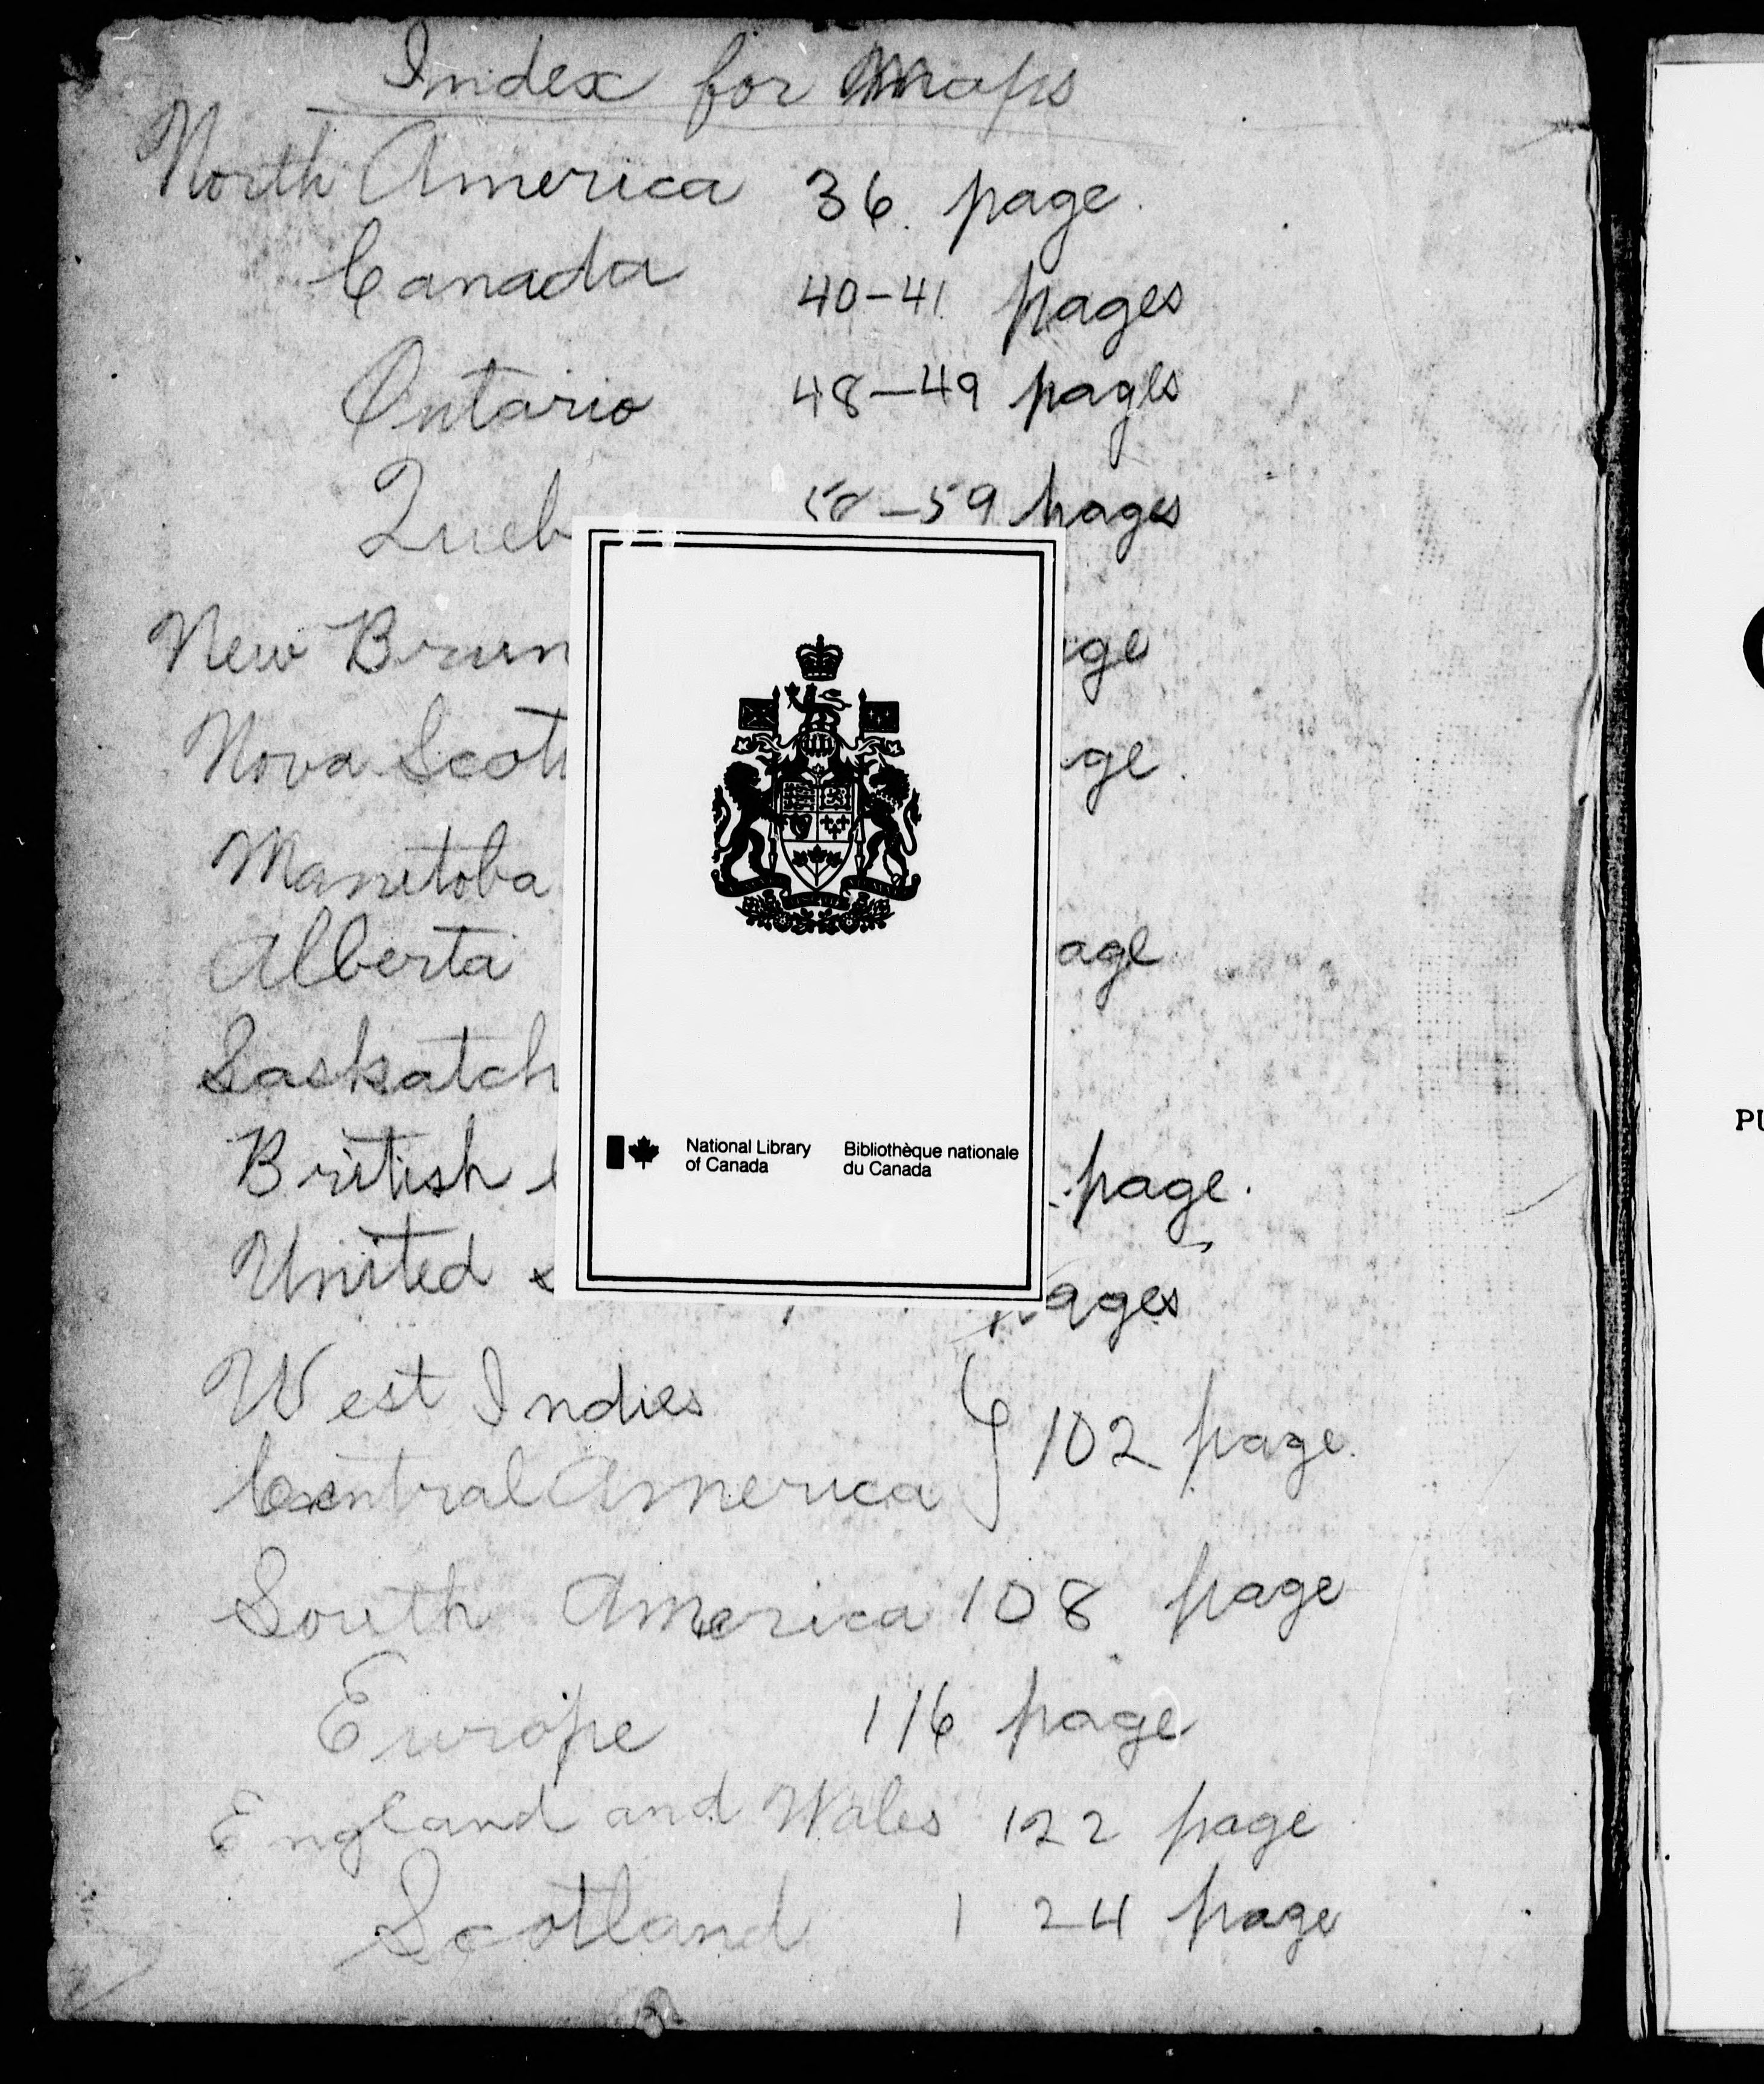 Index for Maps
North America 36 page.
Canada 40-41 pages
Ontario 48-49 pages
Queb 58-59 pages
New Brun ge
Nova Scoti ge.
Manitoba
Alberta age
Saskatch
British page.
United pages
West Indies
Central America } 102 page.
South America 108 page
Europe 116 page
England and Wales 122 page
Scotland 124 page
National Library of Canada
Bibliothèque nationale du Canada
PU